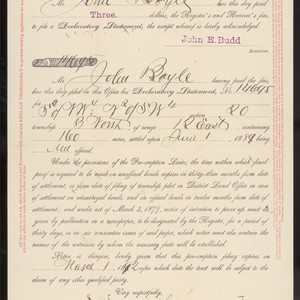 Mr. John Boyle has this day paid
Three dollars, the Register's and Receiver's fees
to file a Declaratory Statement, the receipt whereof is hereby acknowledged.
John E. Budd
Receiver.
No. 14695
Mr. John Boyle having paid the fees,
has this day filed in this Office his Declaratory Statement, No. 14695
for S2 of NW4 N2 of SW4 20
3 North, of range 12 East, containing
160 acres, settled upon June 1 1889, being
offered.
Under the provisions of the Pre-emption Laws, the time within which final
proof is required to be made on unoffered lands expires in thirty-three months from date of
settlement, or from date of filing of township plat in District Land Office in case of
settlement on unsurveyed lands, and on offered lands in twelve months from date of
settlement, and under act of March 3, 1879, notice of intention to prove up must be
given by publication in a newspaper, to be designated by the Register, for a period of
thirty days, or in six consecutive issues, which notice must also contain the names of
the witnesses by whom the necessary facts will be established.
Notice is, therefore, hereby given that this pre-emption filing expires on
March 1 1892 after which date the tract will be subject to the
claim of any other qualified party.
Very respectfully,